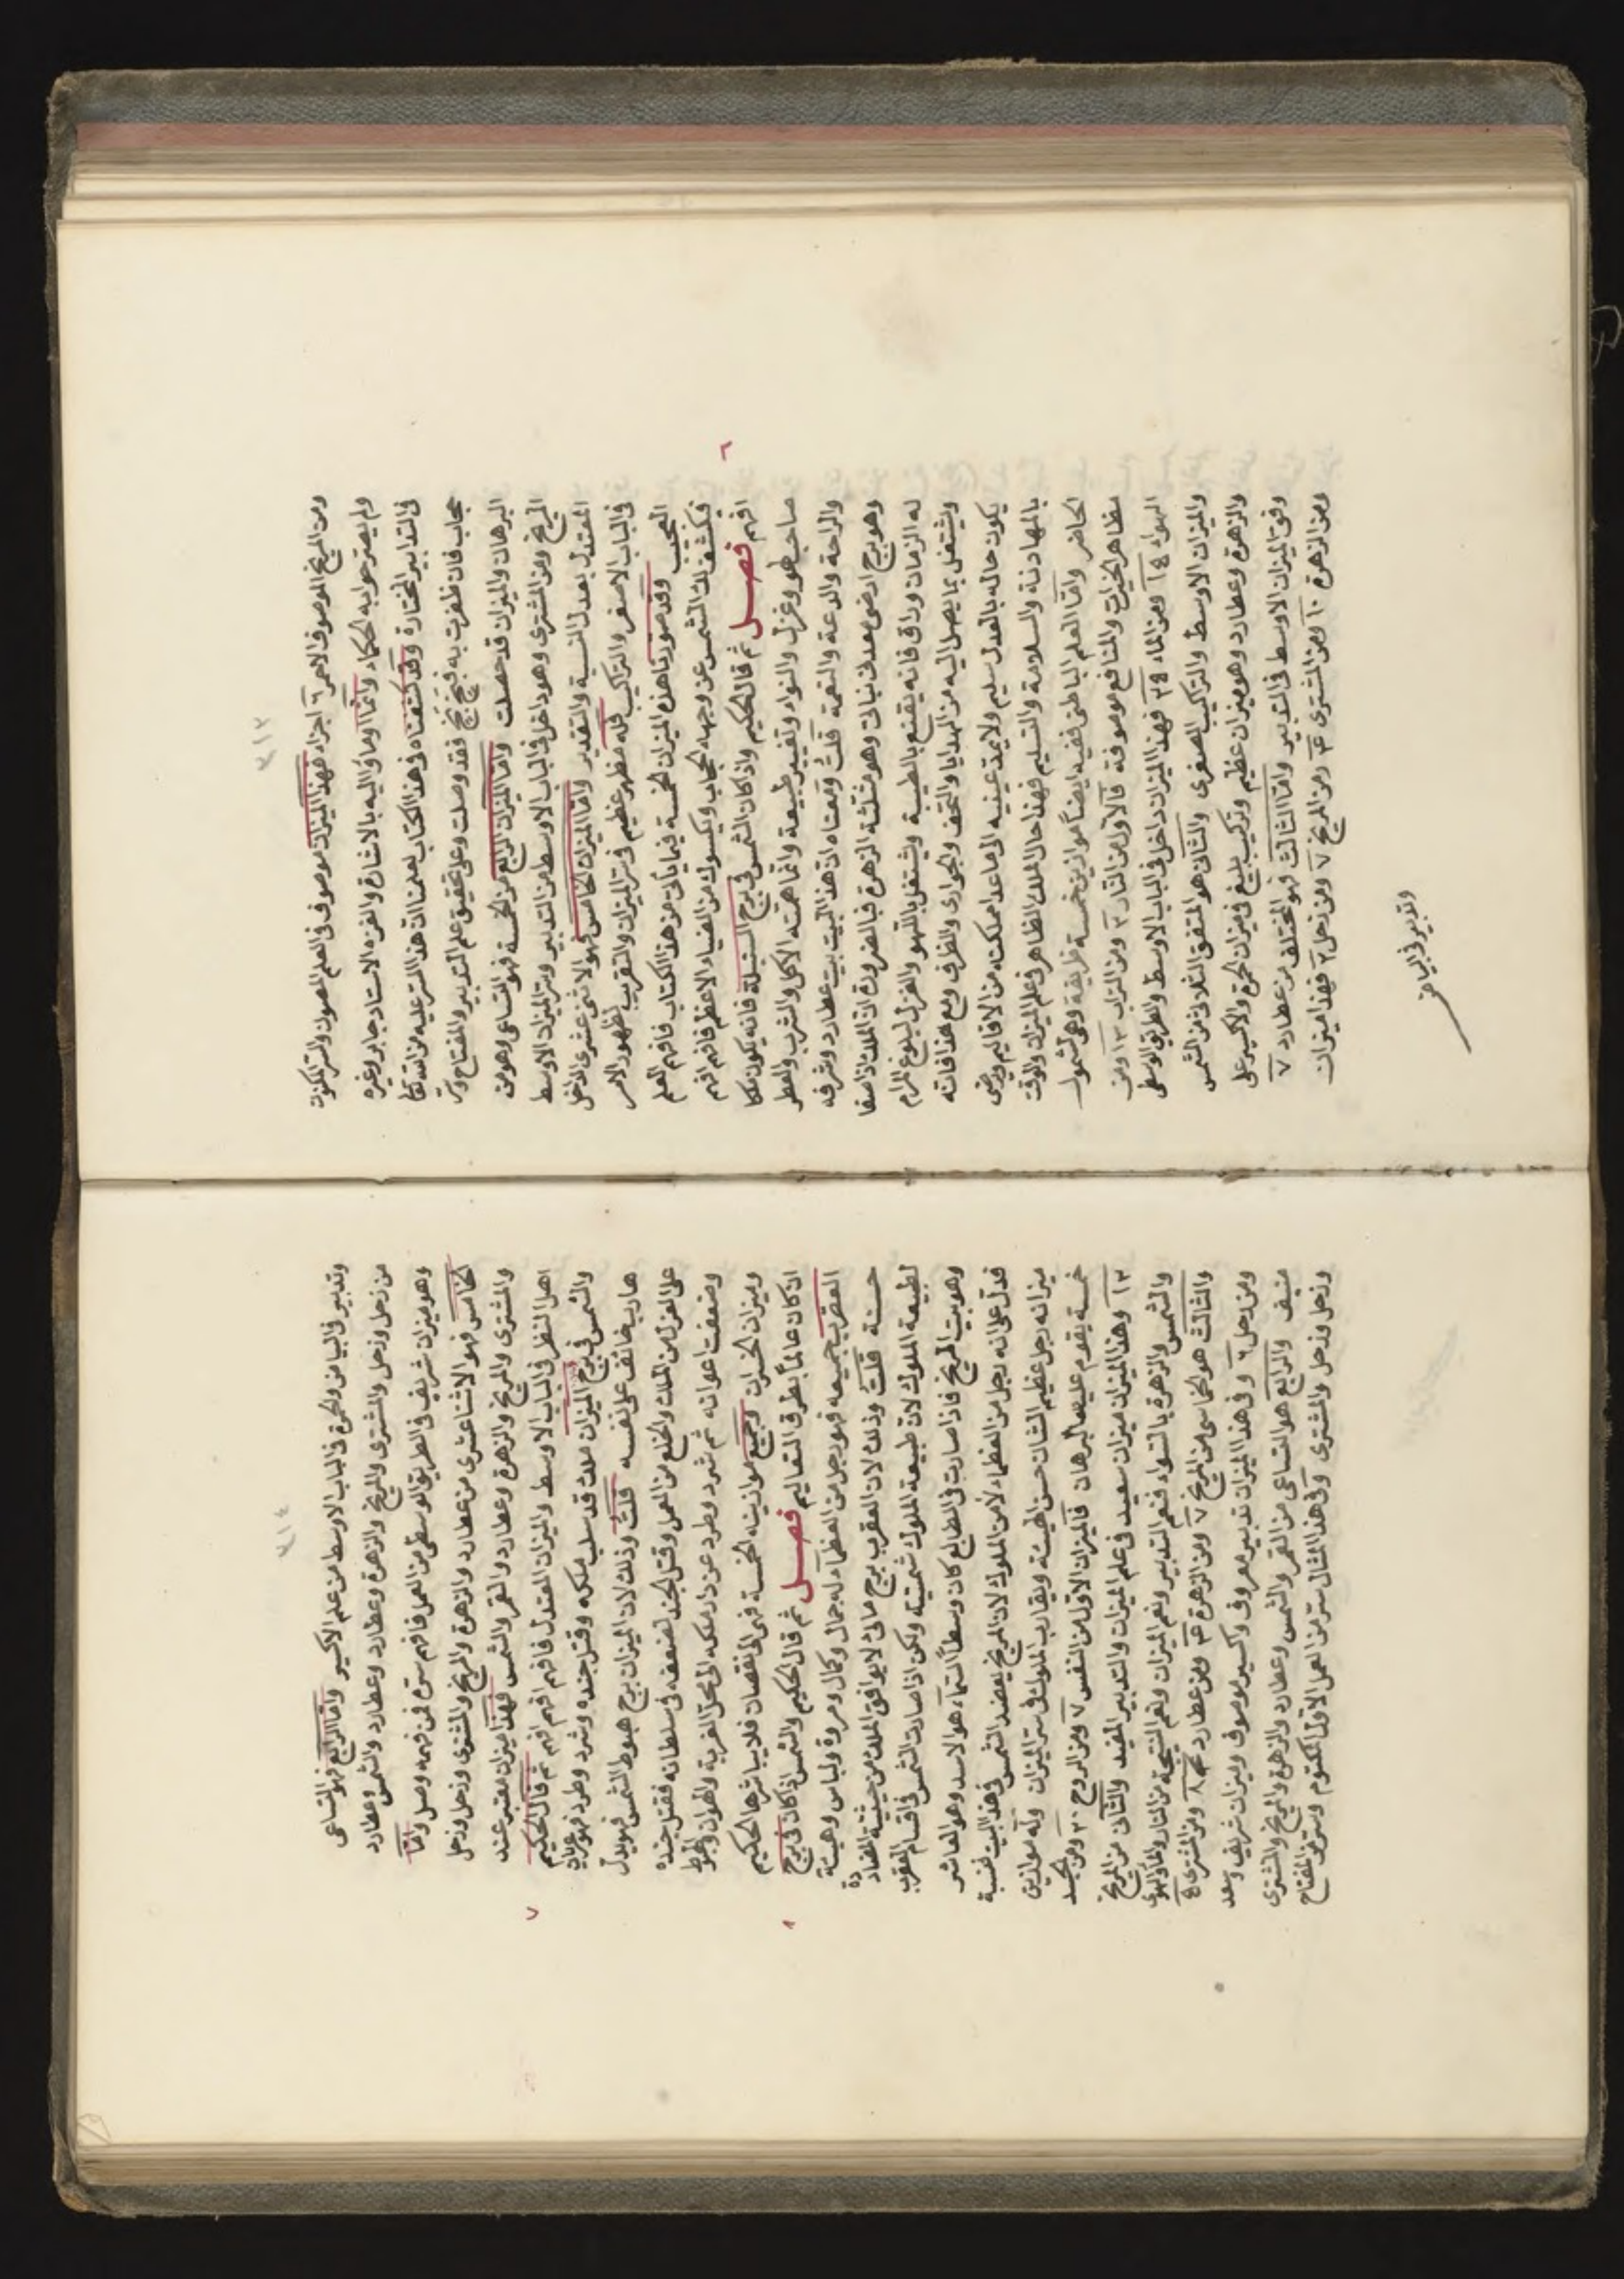 ٣١٣
ومن المريخ الموصوف الاحمر ٦ اجزاء فهذا الميزان موصوف في العلم المصون والسر المكنون
ولم يصرحوا به الحكماء وانما اوماؤا اليه بالاشارة والغمزه الاستاد جابر وغيره
في التدابير المختارة وقد كشفناه في هذا الكتاب لعلمنا ان هذا السر عليه من الله تعالى
حجاب فان ظفرت به فبخ بخ فقد وصلت وعلى تحقيق علم التدبير والمفتاح وسر
البرهان والميزان قد حصلت واما الميزان الرابع من الخمسة فهو التساعي وهو من
المريخ ومن المشترى وهو داخل في الباب الاوسط من التدبير وسر الميزان الاوسط
المعتدل بعدل النسبة والتقدير واما الميزان الخامس فهو الاثني عشرى الداخل
في الباب الاصغر والتراكيب فله مظهر عظيم في سر الميزان والتقريب لظهور الامر
العجيب وقد صورنا هذه الميزان الخمسة فيما يأتي من هذا الكتاب فافهم العلم
فيكشف لك الشمس عن وجهها الحجاب ويكسوك من الضياء الاعظم فافهم افهم
افهم فصل ثم قال الحكيم واذا كان الشمس في برج السنبلة فانه يكون ملكا
صاحب لهو وغزل والنواد وتغيير طبيعة وانما همته الاكل والشرب والعطر
والراحة والدعة والنعمة قلت ومعناه ان هذا البيت بيت عطارد وشرفه
وهو برج ارضي معدني نباتي وهو مثلثة الزهرة فبالضرورة ان الملك اذا صفا
له الزمان وراق فانه يقنع بالطيبة ويشتغل باللهو والغزل لبلوغ المرام
ويشتغل بما يصل اليه من الهدايا والتحف والجوارى والظرف ومع هذا فانه
يكون حاله بالعدل سليم ولا يمد عينيه الى ما عدا مملكته من الاقاليم ويرضى
بالمهادنة والسلامة والتسليم فهذا حال الملك الظاهر في علم الميزان والوقت
الحاضر واما العلم الباطني ففيه ايضاً موازين خمسة ظريفة وهي لشمول
مظاهر الخيرات والمنافع موصوفة فالاول من النار ٣ ومن التراب ١٣ ومن
الهواء ١٤ ومن الماء ٣٩ فهذا الميزان داخل في الباب الاوسط والطريق الوسطى
والميزان الاوسط والتراكيب الصغرى والثاني هو المتفق الثلاثي من الشمس
والزهرة وعطارد وهو ميزان عظيم وتركيب بليغ في ميزان الحمرة والاكسير على
وفق الميزان الاوسط في التدبير واما الثالث فهو المختلف من عطارد ٧
ومن الزهرة ١٠ ومن المشترى ٣ ومن المريخ ٧ ومن زحل ٣ فهذا ميزان
وتدبير في البياض
٦
٣١٤
وتدبير في البياض والحمرة في الباب الاوسط من علم الاكسير واما الرابع فهو التساعي
من زحل وزحل والمشترى والمريخ والزهرة وعطارد وعطارد والشمس وعطارد
وهو ميزان شريف في الطريق الوسطى من العمل فافهم سر من فهمه وصل واما
الخامس فهو الاثنا عشرى من عطارد والزهرة والمريخ والمشترى وزحل وزحل
والمشترى والمريخ والزهرة وعطارد والقمر والشمس فهذا ميزان معتبر عند
اهل النظر في الباب الاوسط والميزان المعتدل فافهم افهم افهم ثم قال الحكيم
والشمس في برج الميزان ملك قد سلب ملكه وقتل جنده وشرد وطرد فهو عريان
هارب خائف على نفسه قلت وذلك لان الميزان برج هبوط الشمس فهو يدل
على العزل من الملك والخلع من العمل وقتل الجند لضعفه في سلطانه فقتل جنده
وضعفت اعوانه ثم شرد وطرد عن دار ملكه الى محل الغربة والهوان والهبوط
وميزان الخسران وجميع موازينه الخمسة فهي الى نقصان فلا يباشرها الحكيم
ان كان عالماً بطرق التعاليم فصل ثم قال الحكيم والشمس اذا كان في برج
العقرب جميعه فهو رجل من العظماء له جمال وكمال ومروة ولباس وهيئة
حسنة قلت وذلك لان العقرب برج مائي لا يوافق الملك من حيثية المضادة
لطبيعة الملوك لان طبيعة الملوك شمسية ولكن اذا صارت الشمس في اقسام العقرب
وهو بيت المريخ فاذا صارت في الطالع كان وسط السماء هو الاسد وهو العاشر
فدل على انه رجل من العظماء لا من الملوك لان المريخ يعضد الشمس في هذا البيت فنسبة
ميزانه رجل عظيم الشان حسن الهيئة ويقارب الملوك في سر الميزان وله موازين
خمسة يقوم عليها البرهان فالميزان الاول من النفس ٧ ومن الروح ٣٠ ومن الجسد
١٣ وهذا الميزان ميزان سعيد في علم الميزان والتدبير المفيد والثاني من المريخ
والشمس والزهرة بالسواء فنعم التدبير ونعم الميزان ونعم النتيجة من النار والماء والهوى
والثالث هو الخماسي من المريخ ٧ ومن الزهرة ٣ ومن عطارد ٨ ومن المشترى ٤
ومن زحل ٦ وفي هذا الميزان تدبير معروف واكسير موصوف وميزان شريف وسعد
منيف والرابع هو التساعي من القمر والشمس وعطارد والزهرة والمريخ والمشترى
وزحل وزحل والمشترى وفي هذا المثال سر من العمل الاول المكتوم وسر من المفتاح
٧
٨